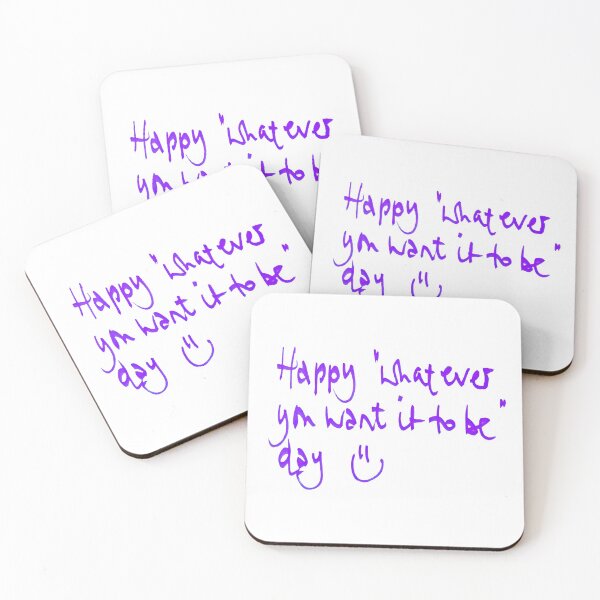 Happy "whatever
you want it to be
Happy "whatever
you want it to be"
day
Happy "whatever
you want it to be"
day
Happy "whatever
you want it to be"
day